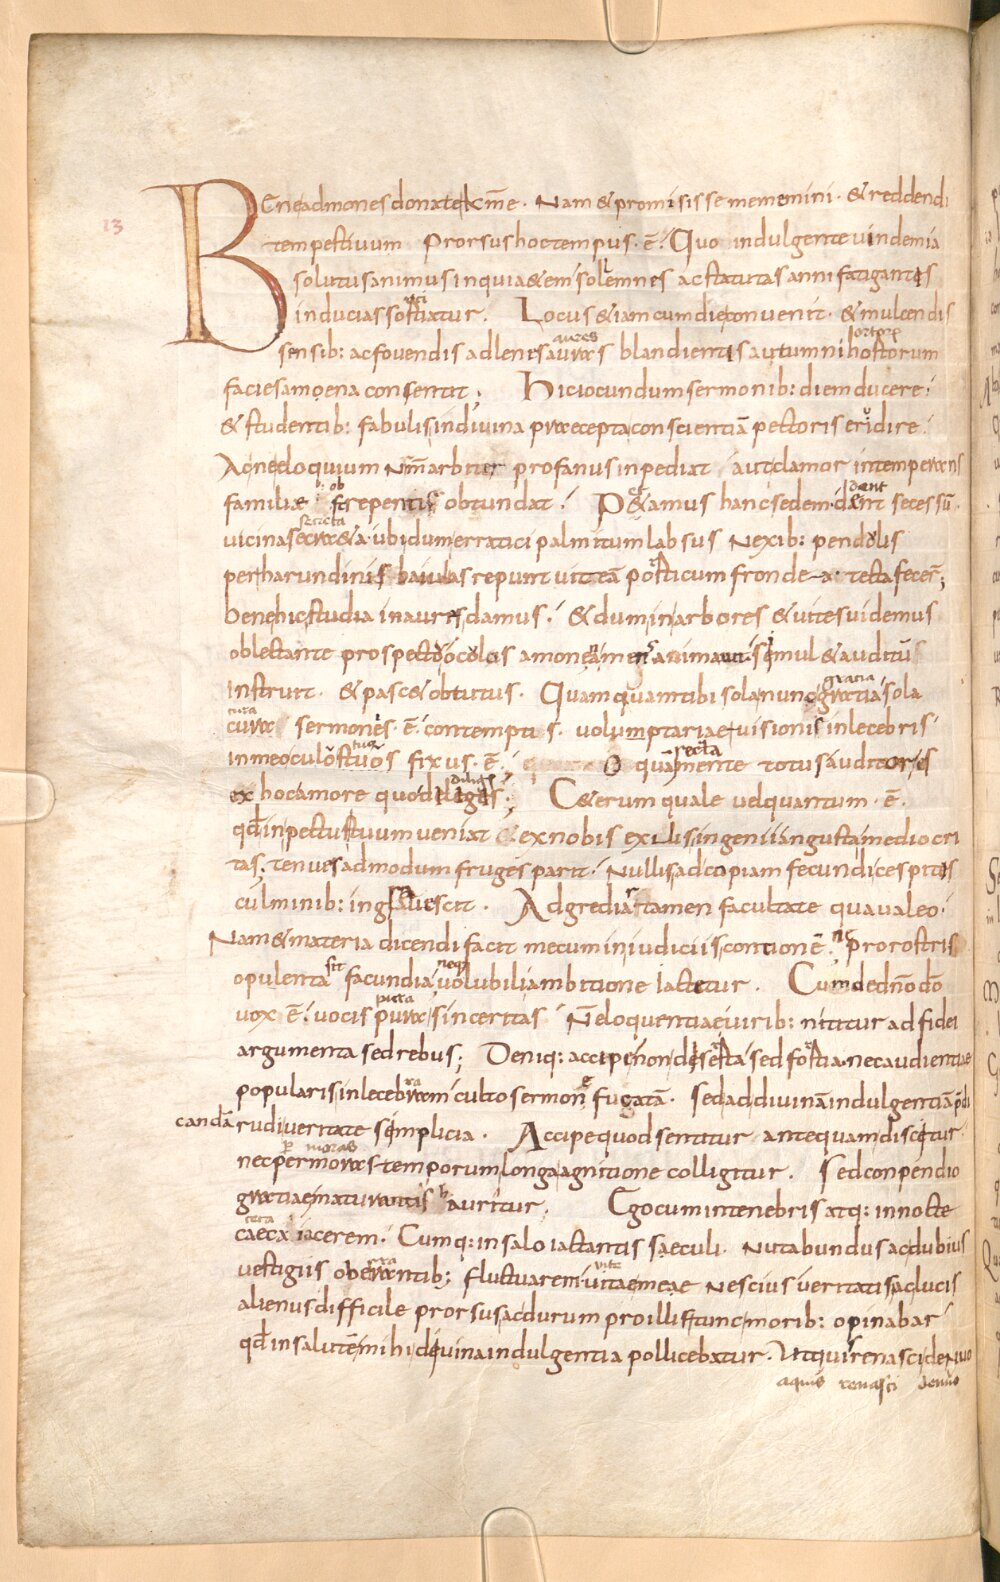 13
BEne admones donate k̄me · Nam & promisisse memini · & reddendi
tempestiuum Prorsus hoc tempus · ē · Quo indulgente uindemia
solutus animus in quia&em solemnes ac statutas anni fatigantis
inducias sortiatur · Locus &iam cum die conuenit · & mulcendis
aures ortorū
sensib: ac fouendis ad lenes auras blandientis autumni hostorum
facies amoena consentit ; Hic iocundum sermonib: diem ducere ·
& studentib: fabulis in diuina praecepta conscientiā pectoris erudire ·
Ac ne eloquium Nr̄m arbiter profanus inpediat aut clamor intemperans
familiae strepentis obtundat · P&amus hanc sedem · dant secessū ·
secreta
uicina secreta · ubi dum erratici palmitum labsus Nexib: pendulis
per harundinis baiulas repunt uiteā porticum frondea tecta fecer̄ ;
bene hic studia in aures damus · & dum in arbores & uites uidemus
oblectante prospectu oculus amoenam animam simul & auditus
gracia
Instruit · & pasc& obtutus · Quamquam tibi sola nunc gratia sola
cura
cura sermones · ē · contemptis · uolumptariae uisionis inlecebris
tuus
in me oculus tuos fixus · ē ·
recta
O quam mente totus auditor es
diligis
ex hoc amore quo diligis ; C&erum quale uel quantum · ē ·
qd̄ in pectus tuum ueniat & ex nobis exilis ingenii angusta mediocri
tas ; tenues admodum fruges parit · Nullis ad copiam fecundi cespitis
culminib: ingrauescit · Adgrediar tamen facultate qua ualeo ·
Nam & materia dicendi facit mecum in iudiciis contionē · pro rostris
sit neq;
opulenta facundia uolubili ambitione iactetur · Cum de dn̄o dō
pura
uox ē · uocis pura sinceritas N̄ eloquentiae uirib: nititur ad fidei
argumenta sed rebus ; Deniq: accipe non deserta sed fortia · nec audientiae
popularis inlecebram culto sermone fugatā · sed ad diuinā indulgentiā p̄di
candā rudi ueritate simplicia · Accipe quod sentitur antequam discitur ·
per moras
nec per moras temporum longa agnitione colligitur · Sed conpendio
gratiae maturantis hauritur · Ego cum in tenebris atq: in nocte
ceca
caeca iacerem · Cumq: in salo iactantis saeculi · Nutabundus ac dubius
uite
uestigiis oberrantib; fluctuarem uitae meae Nescius ueritatis ac lucis
alienus difficile prorsus ac durum pro illis tunc morib: opinabar
qd̄ in salutē mihi diuina indulgentia pollicebatur · Ut quis renasci denuo
aquis renasci denuo